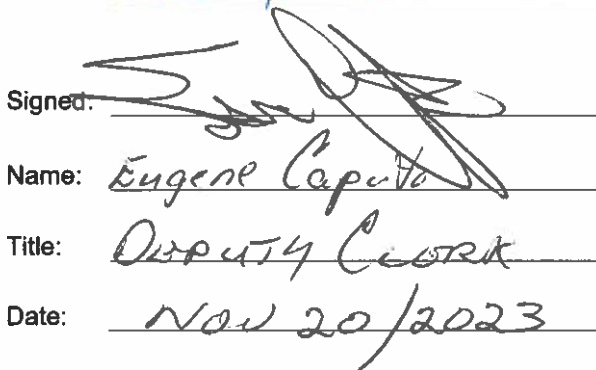 Signed:
Name: Eugene Caputo
Title: Deputy Clerk
Date: Nov 20/2023